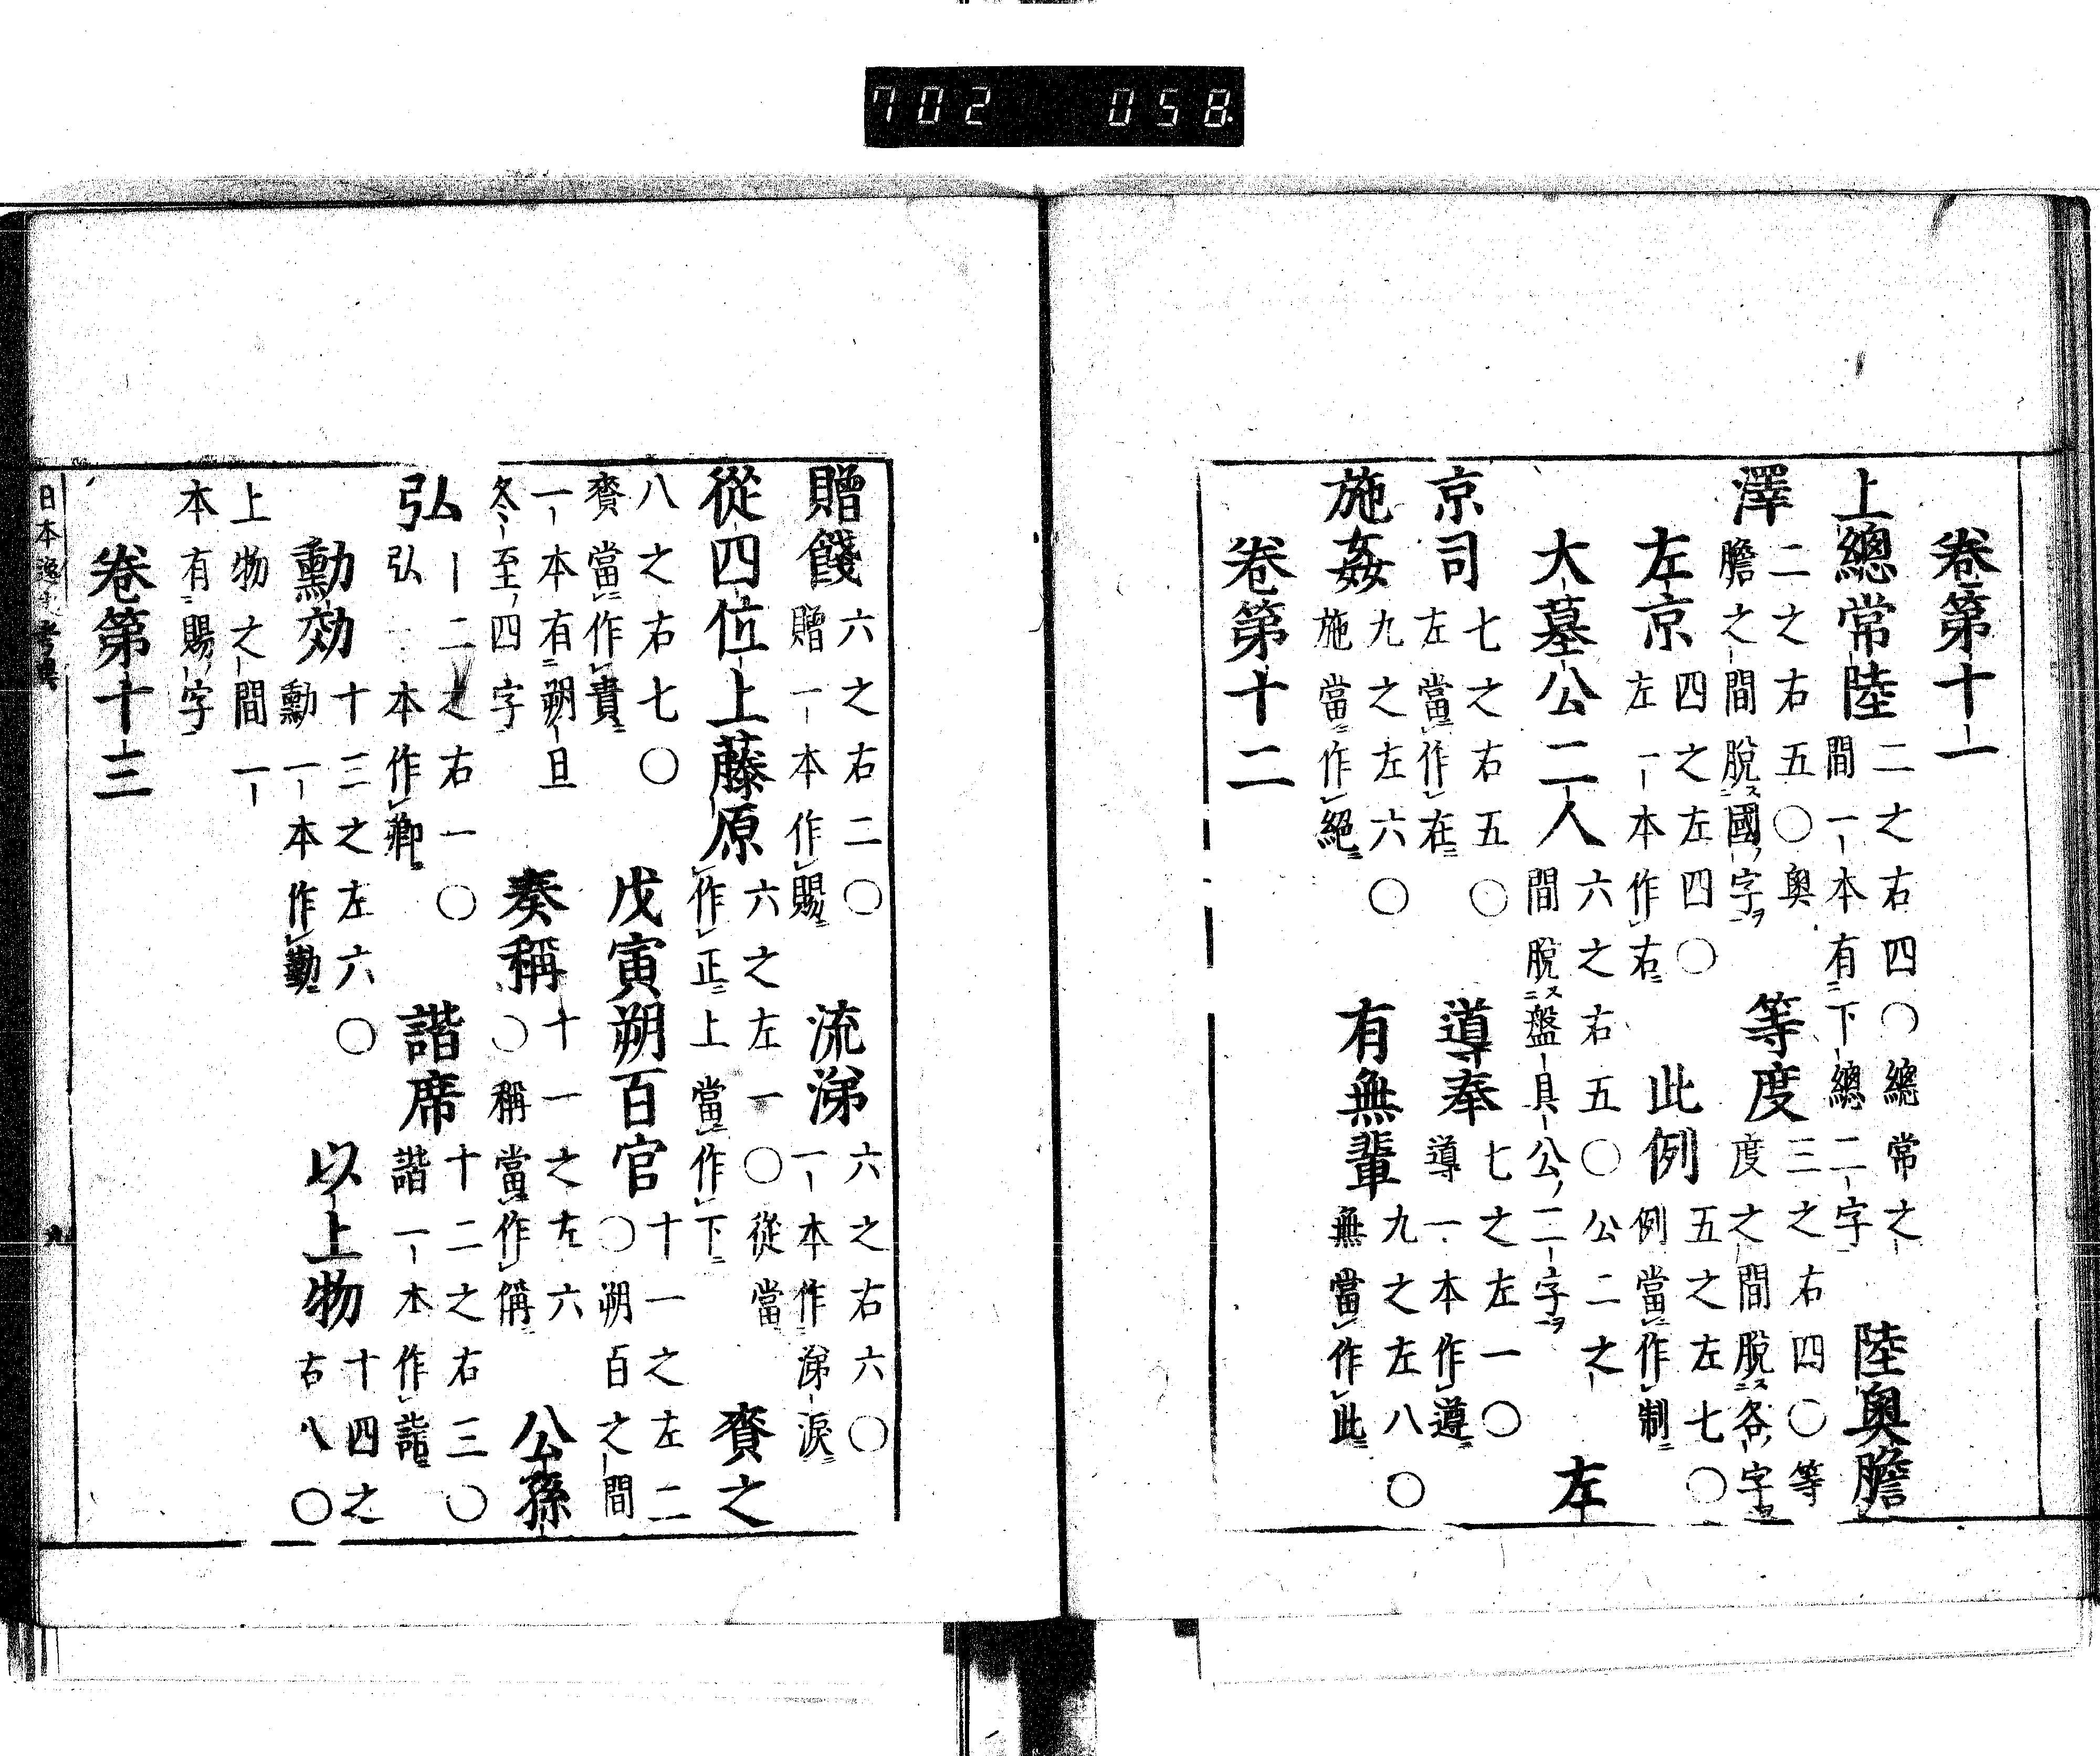 702 058
卷第十一
上總常陸 二之右四〇總常之間一本有下總二字 陸奧膽
澤 二之右五〇奧膽之間脫國字 等度 三之右四〇等度之間脫各字
左京 四之左四〇左一本作右 此例 五之左七〇例當作制
大墓公二人 六之右五〇公二之間脫盤具公二字 左
京司 七之右五〇左當作在 導奉 七之左一〇導一本作遵
施姦 九之左六〇施當作絕 有無輩 九之左八〇無當作此
卷第十二
贈餞 六之右二〇贈一本作賜 流涕 六之右六〇一本作涕淚
從四位上藤原 六之左一〇從當作正上當作下 賚之
八之右七〇賚當作賷 戊寅朔百官 十一之左二〇朔百之間
一本有朔旦冬至四字 奏稱 十一之左六〇稱當作偁 公孫
弘 十二之右一〇弘一本作卿 諧席 十二之右三〇諧一本作詣
勳効 十三之左六〇勳一本作勤 以上物 十四之右八〇
上物之間一本有賜字
卷第十三
日本逸史考異 九